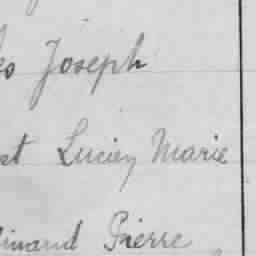 es Joseph
st Lucien Marie
dinand Pierre